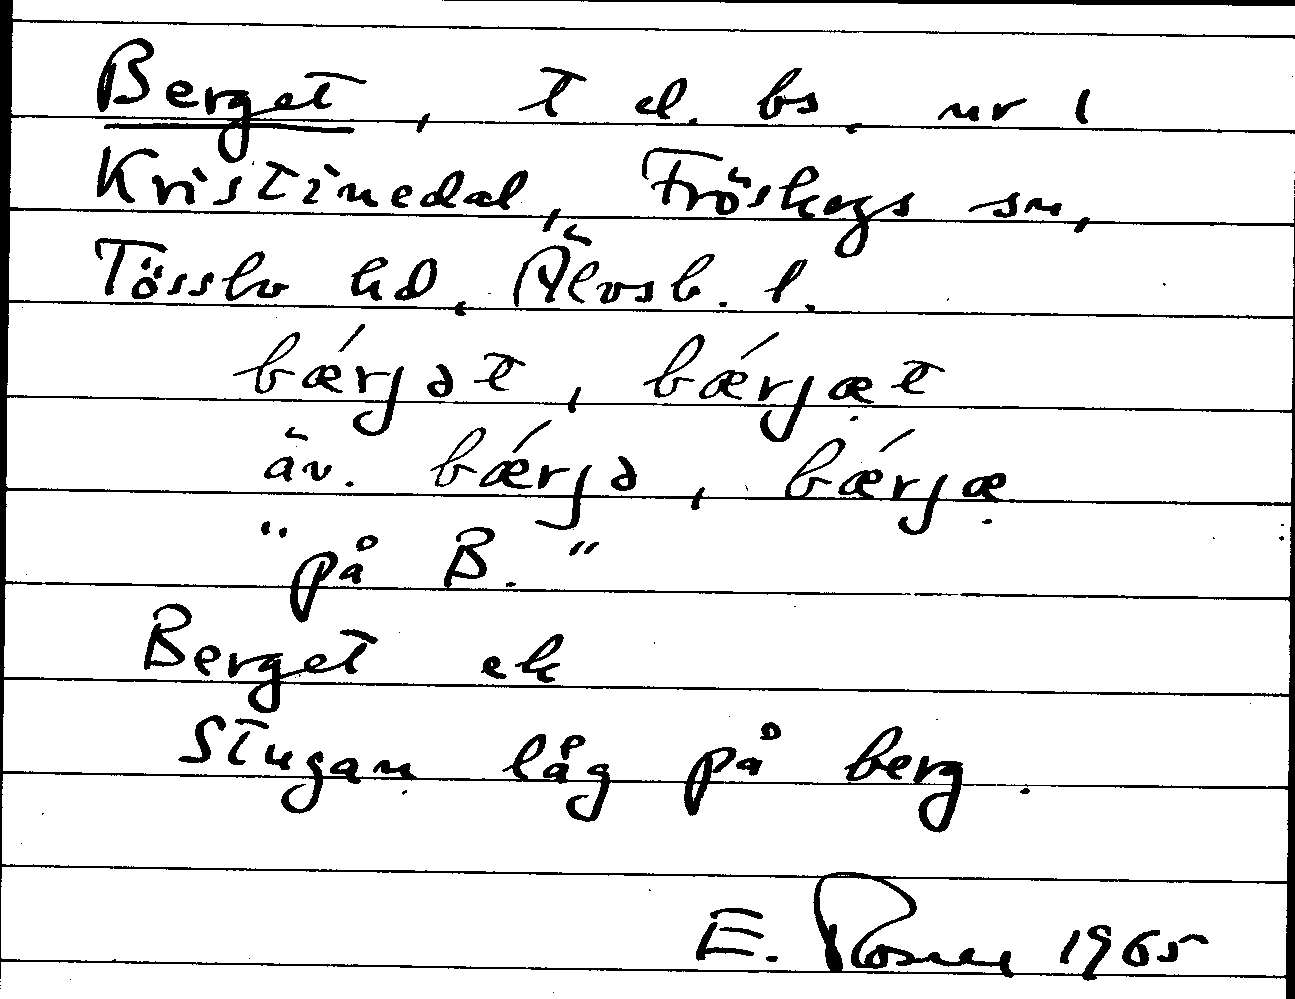 Berget, t el. bs. nr 1
Kristinedal, Fröskogs sn,
Tössbo hd. Älvsb. l.
bǽrjət, bǽrjæt
äv. bǽrjə, bǽrjæ
"på B."
Berget ek
Stugan låg på berg.
E. Rosner 1965